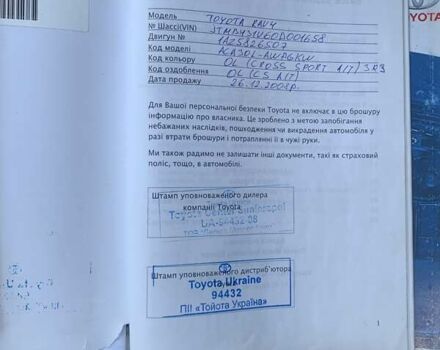 Модель TOYOTA RAV4
№ Шассі(VIN) JTMBH31V60D001658
Двигун № 1AZ5826507
Код моделі ACA30L-AWPGKW
Код кольору OL (CROSS SPORT KIT) 3R3
Код оздоблення OL (CS KIT)
Дата продажу 26.12.2007р.
Для Вашої персональної безпеки Toyota не включає в цю брошуру
інформацію про власника. Це зроблено з метою запобігання
небажаних наслідків, пошкодження чи викрадення автомобіля у
разі втрати брошури і потраплянні її в чужі руки.
Ми також радимо не залишати інші документи, такі як страховий
поліс, тощо, в автомобілі.
Штамп уповноваженого дилера
компанії Toyota
Toyota Center Simferopol
UA-94432-08
Штамп уповноваженого дистриб'ютора
Toyota Ukraine
94432
ПІІ «Тойота Україна»
1
TOYOTA